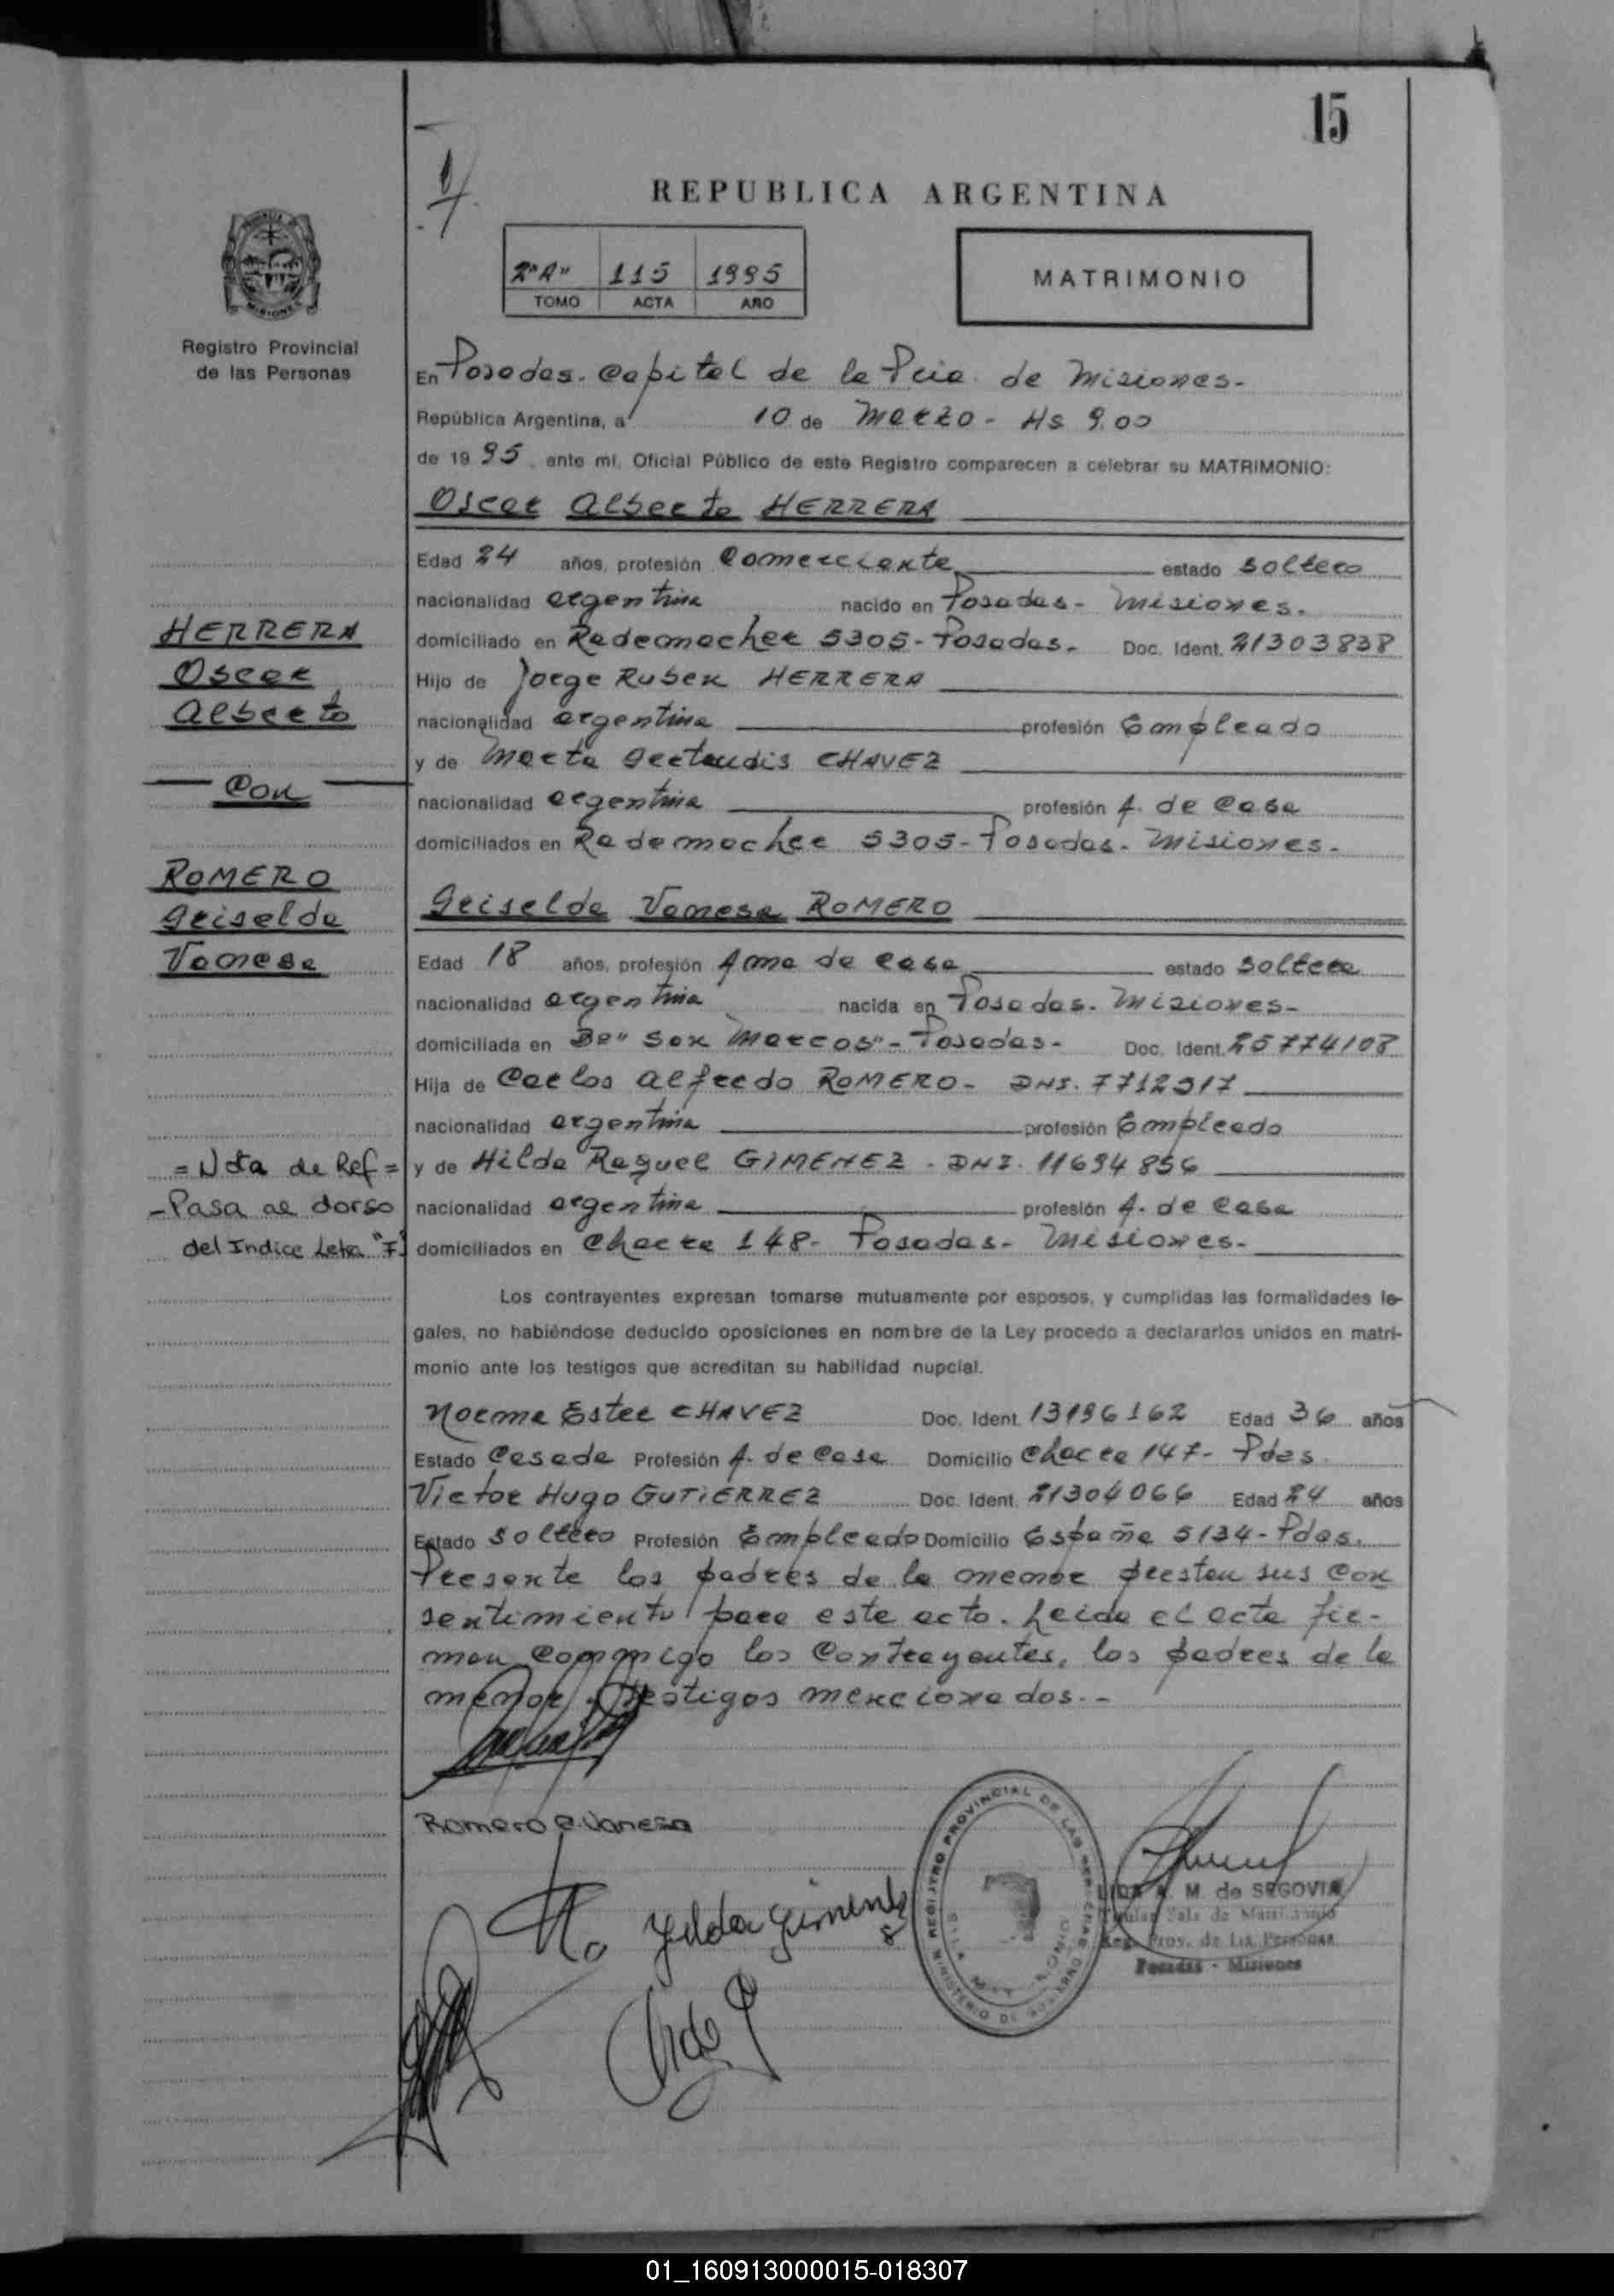 15
REPUBLICA ARGENTINA
2º"A" 115 1995
TOMO ACTA AÑO
MATRIMONIO
Registro Provincial
de las Personas
En Posadas. Capital de la Pcia. de Misiones-
República Argentina, a 10 de Marzo - Hs 9.00
de 19 95, ante mí, Oficial Público de este Registro comparecen a celebrar su MATRIMONIO:
Oscar Alberto HERRERA
Edad 24 años, profesión Comerciante estado soltero
nacionalidad argentina nacido en Posadas- Misiones.
domiciliado en Rademacher 5305- Posadas. Doc. Ident. 21303838
Hijo de Jorge Ruben HERRERA
nacionalidad argentina profesión Empleado
y de Marta Gertrudis CHAVEZ
nacionalidad argentina profesión A. de Casa
domiciliados en Rademacher 5305- Posadas- Misiones-
Griselda Vanesa ROMERO
Edad 18 años, profesión Ama de Casa estado soltera
nacionalidad argentina nacida en Posadas. Misiones-
domiciliada en Bº" San Marcos"- Posadas- Doc. Ident. 25774108
Hija de Carlos Alfredo ROMERO- DNI. 7712317
nacionalidad argentina profesión Empleado
y de Hilda Raquel GIMENEZ. DNI. 11694856
nacionalidad argentina profesión A. de Casa
domiciliados en Chacra 148- Posadas- Misiones-
HERRERA
Oscar
Alberto
Con
ROMERO
Griselda
Vanesa
= Nota de Ref =
-Pasa al dorso
del Indice Letra "F"
Los contrayentes expresan tomarse mutuamente por esposos, y cumplidas las formalidades le-
gales, no habiéndose deducido oposiciones en nombre de la Ley procedo a declararlos unidos en matri-
monio ante los testigos que acreditan su habilidad nupcial.
Norma Ester CHAVEZ Doc. Ident. 13196162 Edad 36 años
Estado Casada Profesión A. de Casa Domicilio Chacra 147- Pdas.
Victor Hugo GUTIERREZ Doc. Ident. 21304066 Edad 24 años
Estado soltero Profesión Empleado Domicilio España 5134- Pdas.
Presente los padres de la menor prestan sus con
sentimiento para este acto. Leida el acta fir-
man conmigo los Contrayentes, los padres de la
menor, testigos mencionados.-
Romero G. Vanesa
Hilda Gimenez
REGISTRO PROVINCIAL DE LAS PERSONAS
MINISTERIO DE GOBIERNO
M. de SEGOVIA
Titular Sala de Matrimonio
Reg. Prov. de Las Personas
Posadas - Misiones
01_160913000015-018307